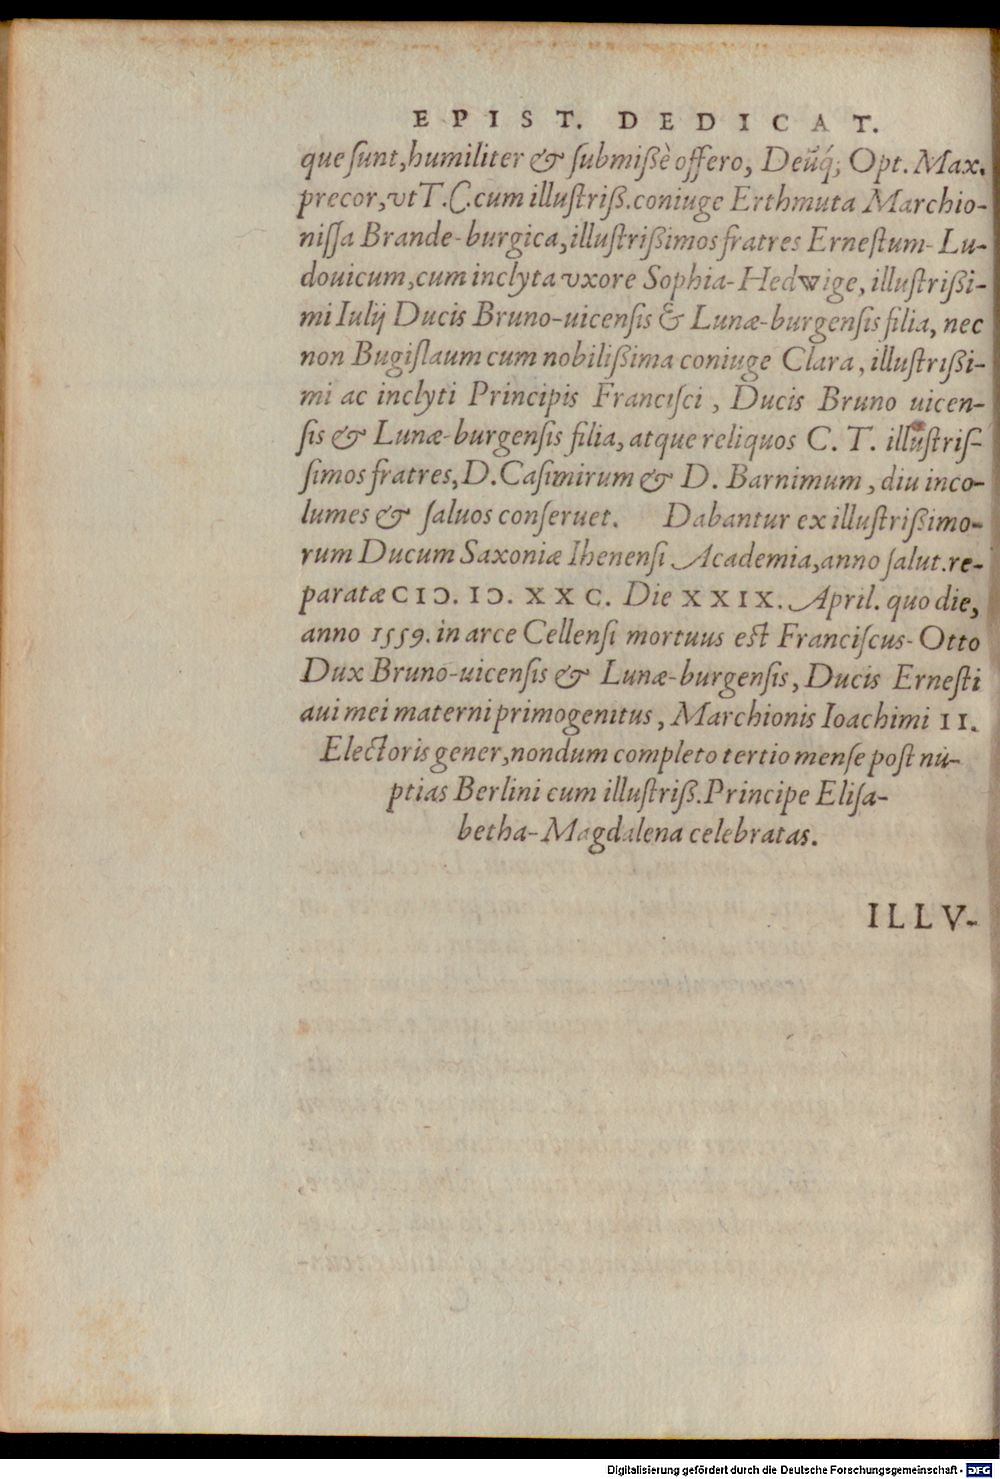 EPIST. DEDICAT.
que sunt, humiliter & submißè offero, Deũq́; Opt. Max.
precor, vt T. C. cum illustriß. coniuge Erthmuta Marchio-
nissa Brande-burgica, illustrißimos fratres Ernestum-Lu-
douicum, cum inclyta vxore Sophia-Hedwige, illustrißi-
mi Iulij Ducis Bruno-uicensis & Lunæ-burgensis filia, nec
non Bugislaum cum nobilißima coniuge Clara, illustrißi-
mi ac inclyti Principis Francisci, Ducis Bruno uicen-
sis & Lunæ-burgensis filia, atque reliquos C. T. illustris-
simos fratres, D. Casimirum & D. Barnimum, diu inco-
lumes & saluos conseruet. Dabantur ex illustrißimo-
rum Ducum Saxoniæ Ihenensi Academia, anno salut. re-
paratæ CIↃ. IↃ. XXC. Die XXIX. April. quo die,
anno 1559. in arce Cellensi mortuus est Franciscus-Otto
Dux Bruno-uicensis & Lunæ-burgensis, Ducis Ernesti
aui mei materni primogenitus, Marchionis Ioachimi II.
Electoris gener, nondum completo tertio mense post nu-
ptias Berlini cum illustriß. Principe Elisa-
betha-Magdalena celebratas.
ILLV-
Digitalisierung gefördert durch die Deutsche Forschungsgemeinschaft - DFG